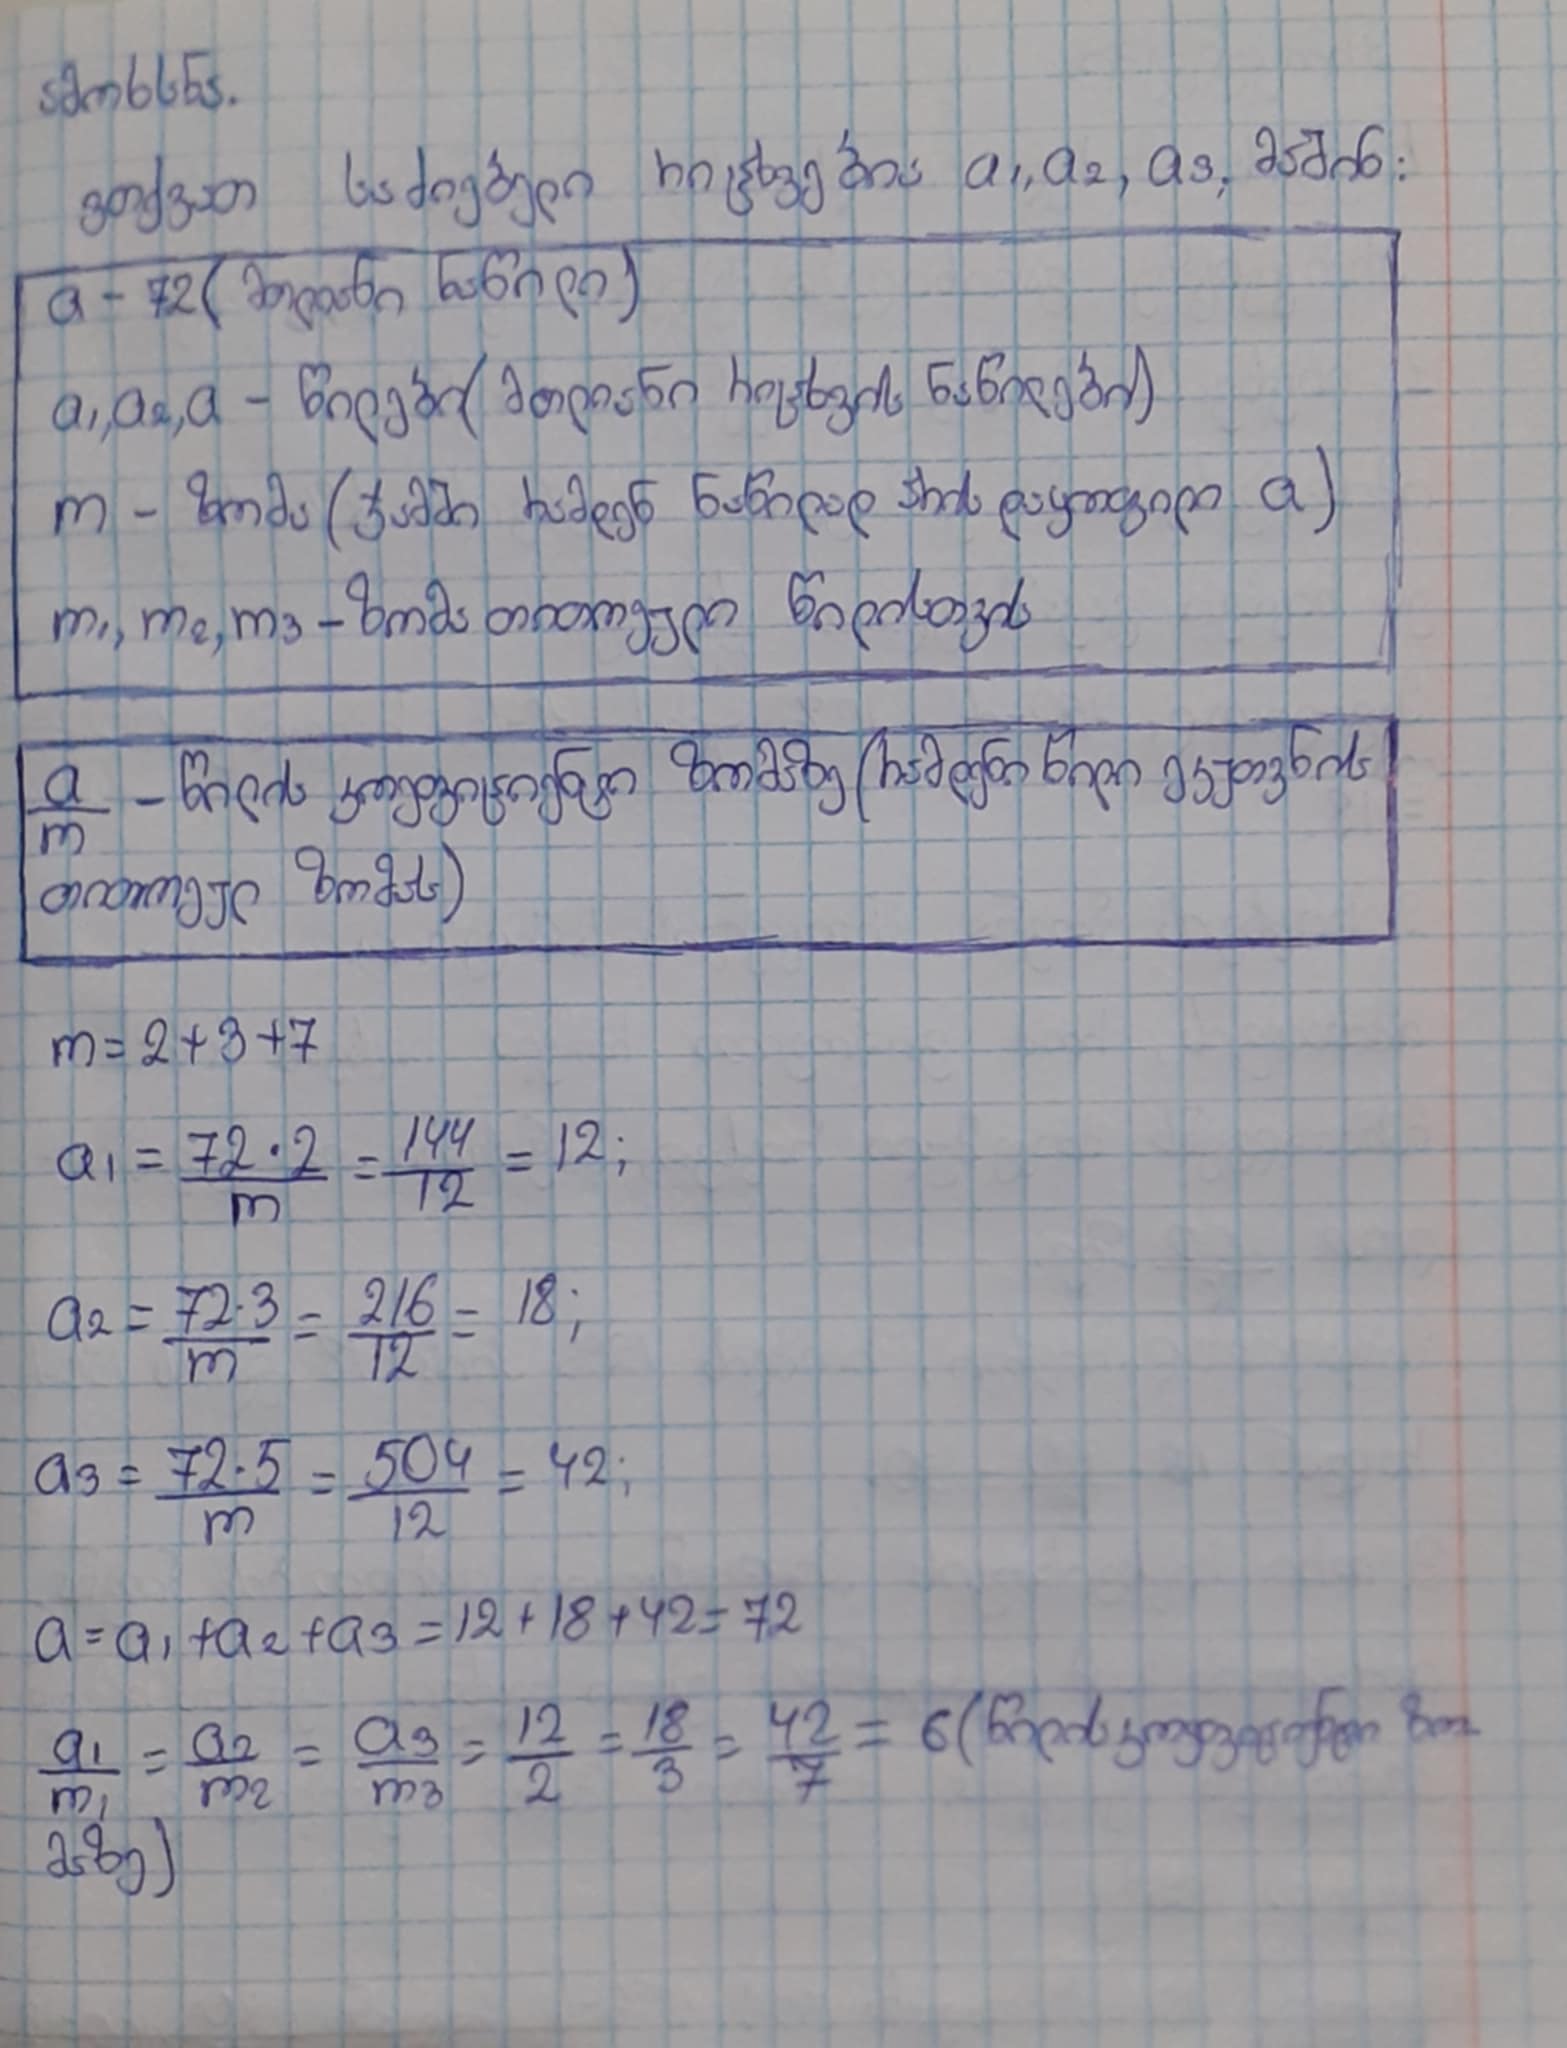 ამოხსნა.
ვთქვათ საძიებელი რიცხვებია a₁, a₂, a₃, მაშინ:
a - 72 (მთლიანი ნაწილი)
a₁, a₂, a - წილები (მთლიანი რიცხვის ნაწილები)
m - ზომა (ჯამში რამდენ ნაწილად არის დაყოფილი a)
m₁, m₂, m₃ - ზომა თითოეული წილისთვის
a/m - წილის კოეფიციენტი ზომაზე (რამდენი წილი ეკუთვნის
თითოეულ ზომას)
m = 2 + 3 + 7
a₁ = 72·2/m = 144/12 = 12;
a₂ = 72·3/m = 216/12 = 18;
a₃ = 72·5/m = 504/12 = 42;
a = a₁ + a₂ + a₃ = 12 + 18 + 42 = 72
a₁/m₁ = a₂/m₂ = a₃/m₃ = 12/2 = 18/3 = 42/7 = 6 (წილის კოეფიციენტი ზო-
მაზე)